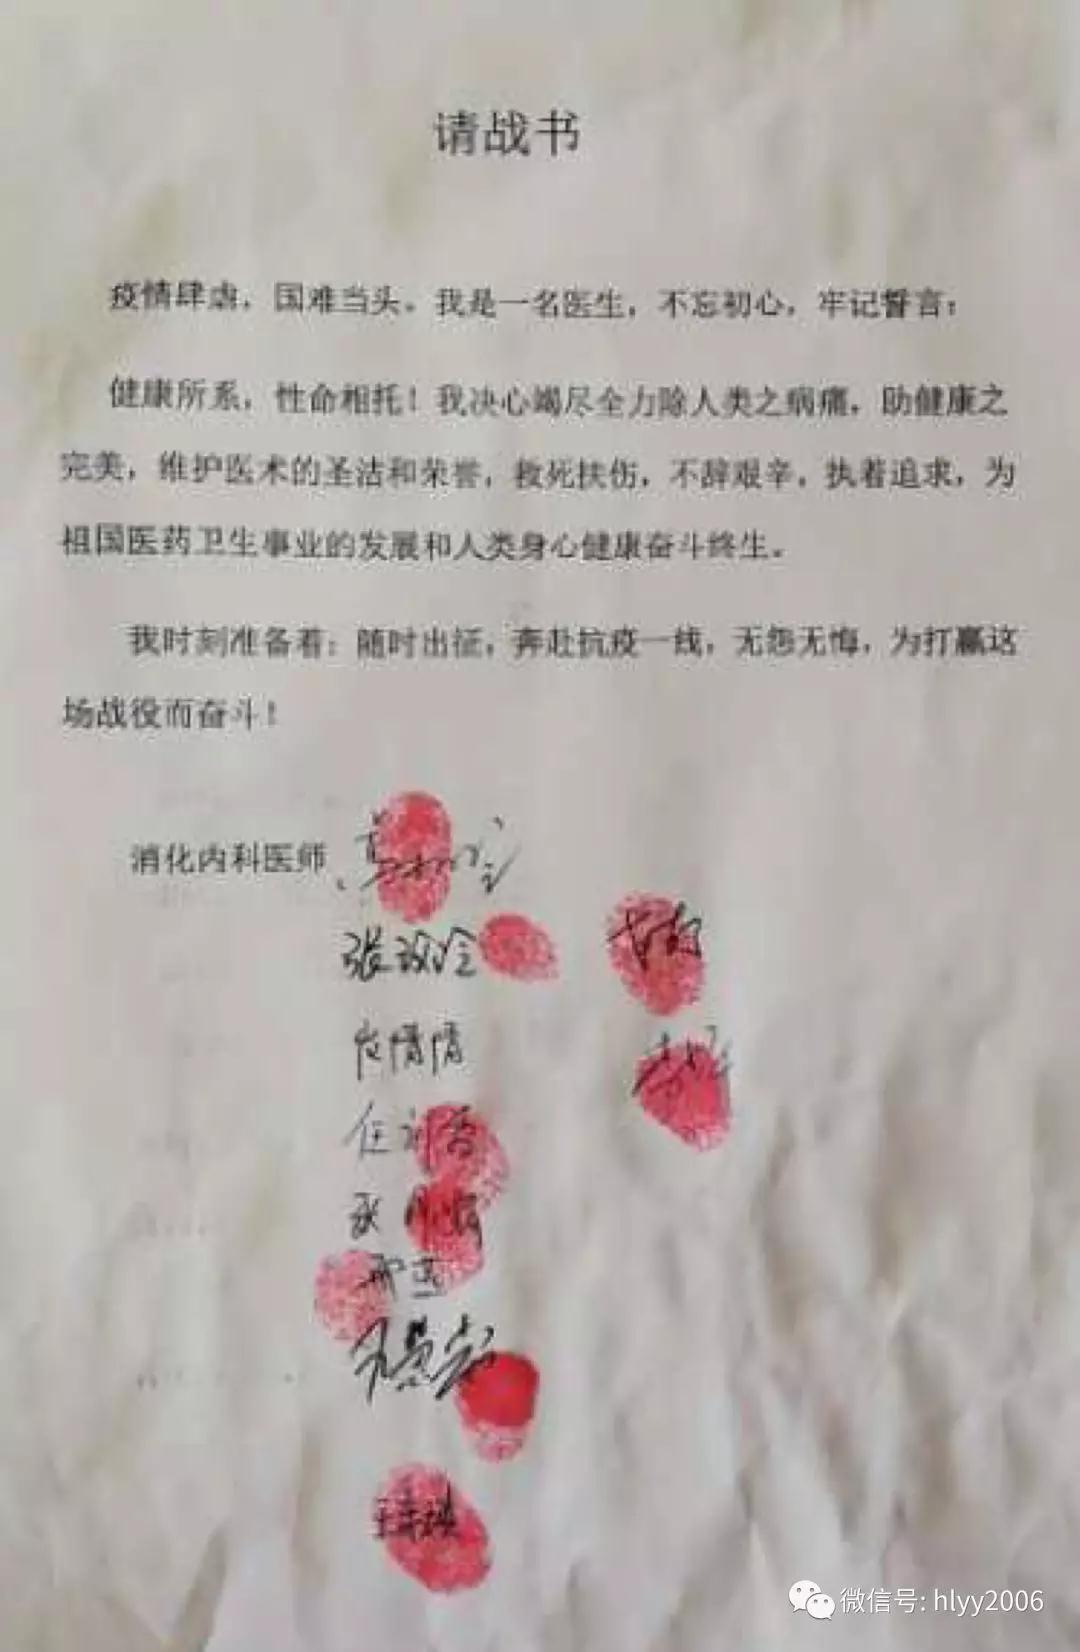 请战书
疫情肆虐，国难当头。我是一名医生，不忘初心，牢记誓言：
健康所系，性命相托！我决心竭尽全力除人类之病痛，助健康之
完美，维护医术的圣洁和荣誉，救死扶伤，不辞艰辛，执着追求，为
祖国医药卫生事业的发展和人类身心健康奋斗终生。
我时刻准备着：随时出征，奔赴抗疫一线，无怨无悔，为打赢这
场战役而奋斗！
消化内科医师
微信号: hlyy2006